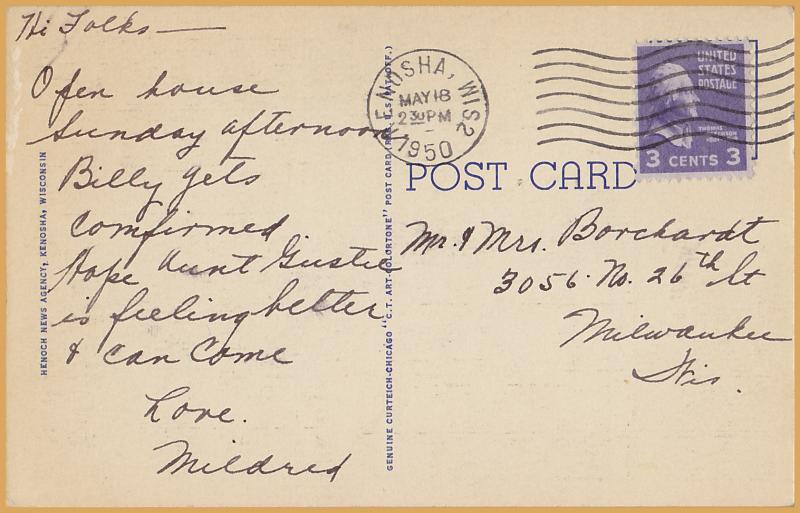 Hi Folks —
Open house
Sunday afternoon
Billy gets
comfirmed
Hope Aunt Gustie
is feeling better
& can come
Love.
Mildred
HENOCH NEWS AGENCY, KENOSHA, WISCONSIN
GENUINE CURTEICH-CHICAGO "C.T. ART-COLORTONE" POST CARD (REG. U.S. PAT. OFF.)
KENOSHA, WIS.
MAY 18
2 30 PM
1950
UNITED
STATES
POSTAGE
THOMAS
JEFFERSON
3 CENTS 3
POST CARD
Mr. & Mrs. Borchardt
3056. No. 26th St
Milwaukee
Wis.